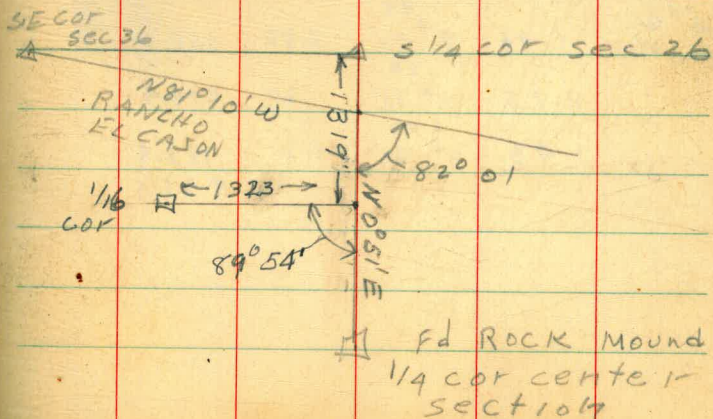 SE COR
SEC 36
S 1/4 COR SEC 26
N81°10'W
RANCHO
EL CAJON
1319'
82° 01
1/16
COR
←1323→
N 0°51'E
89° 54'
Fd ROCK MOUND
1/4 COR center
section